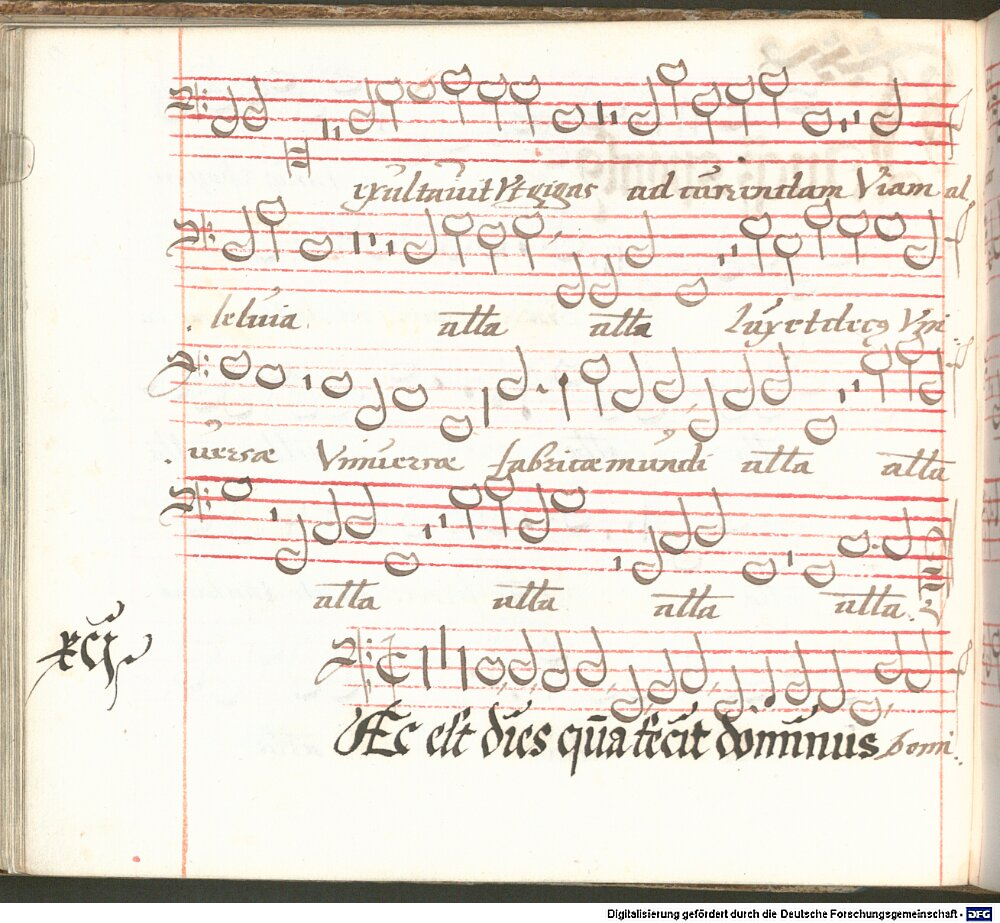 exultavit Vt gigas ad currendam Viam al
leluia. alla alla lux et decus Vni
uersæ Vniuersæ fabricæ mundi alla alla
alla alla alla alla.
xcj.
Æc est dies quã fecit dominus homi
Digitalisierung gefördert durch die Deutsche Forschungsgemeinschaft - DFG